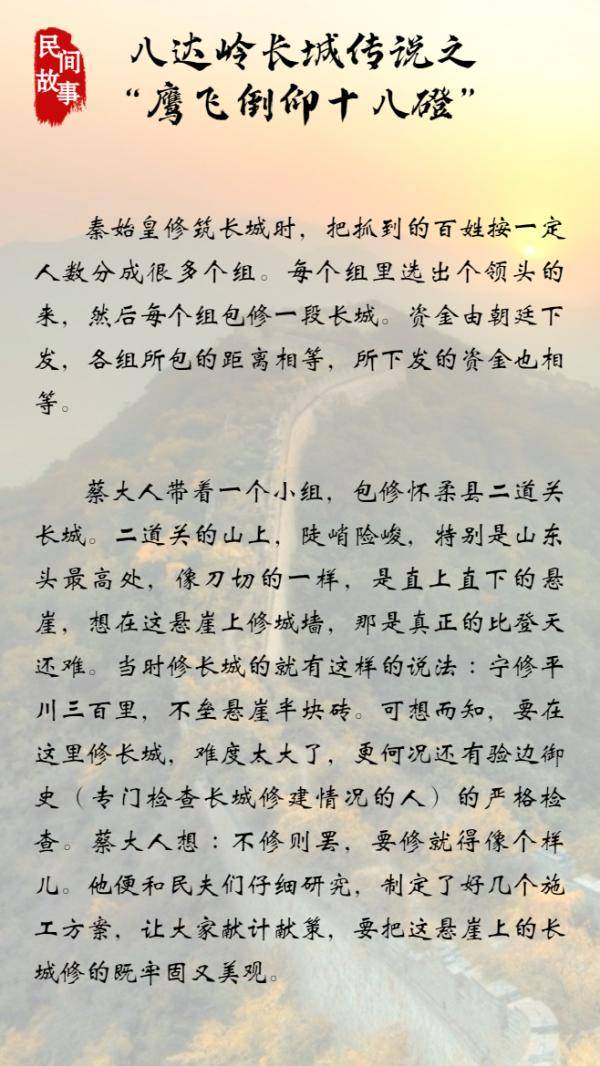 民间
故事
八达岭长城传说之
“鹰飞倒仰十八磴”
秦始皇修筑长城时，把抓到的百姓按一定
人数分成很多个组。每个组里选出个领头的
来，然后每个组包修一段长城。资金由朝廷下
发，各组所包的距离相等，所下发的资金也相
等。
蔡大人带着一个小组，包修怀柔县二道关
长城。二道关的山上，陡峭险峻，特别是山东
头最高处，像刀切的一样，是直上直下的悬
崖，想在这悬崖上修城墙，那是真正的比登天
还难。当时修长城的就有这样的说法：宁修平
川三百里，不垒悬崖半块砖。可想而知，要在
这里修长城，难度太大了，更何况还有验边御
史（专门检查长城修建情况的人）的严格检
查。蔡大人想：不修则罢，要修就得像个样
儿。他便和民夫们仔细研究，制定了好几个施
工方案，让大家献计献策，要把这悬崖上的长
城修的既牢固又美观。